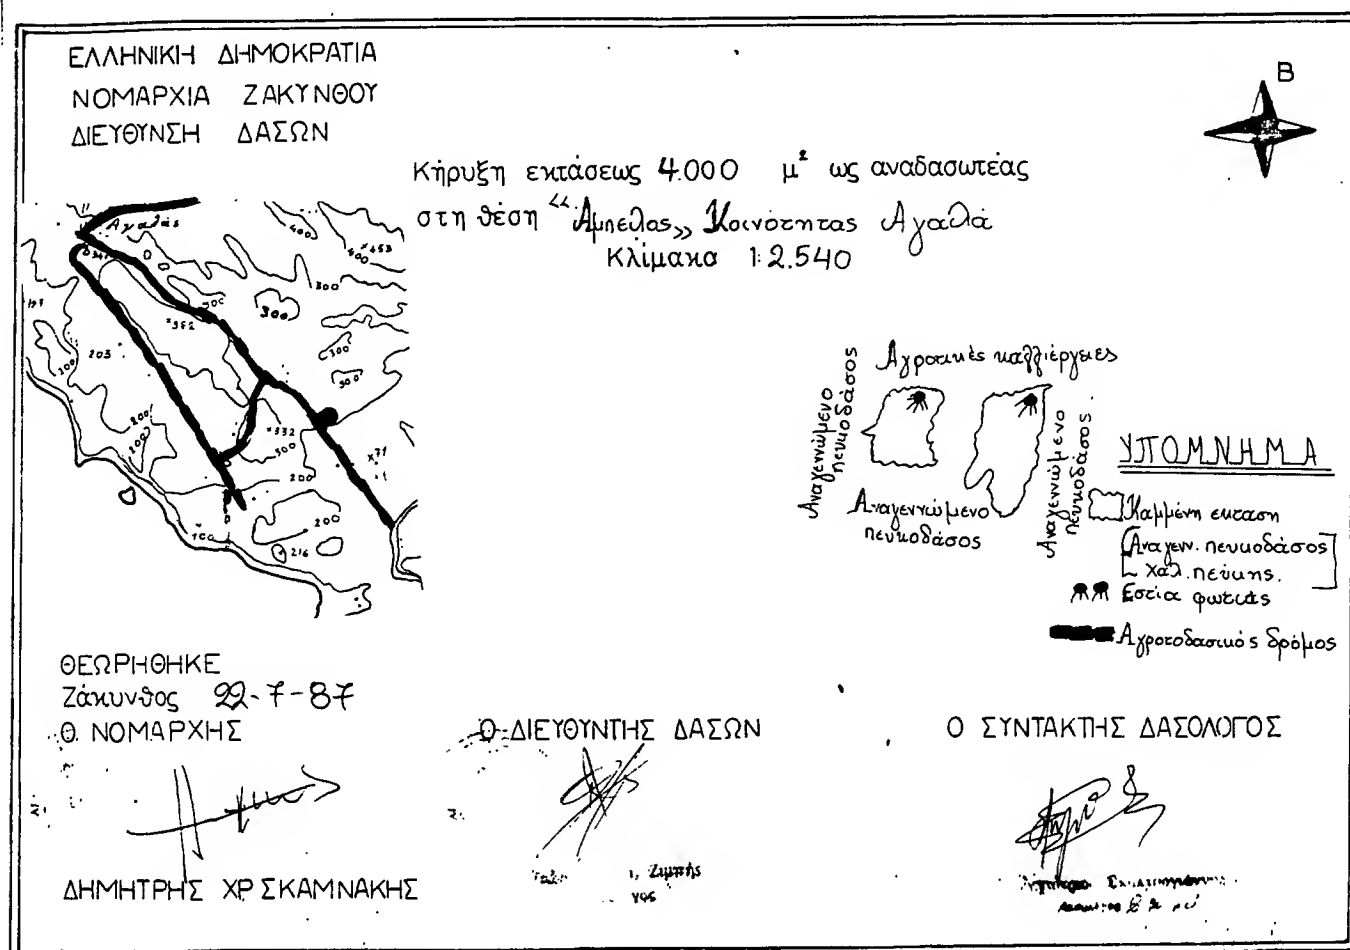 ΕΛΛΗΝΙΚΗ ΔΗΜΟΚΡΑΤΙΑ
ΝΟΜΑΡΧΙΑ ΖΑΚΥΝΘΟΥ
ΔΙΕΥΘΥΝΣΗ ΔΑΣΩΝ
Β
Κήρυξη εκτάσεως 4.000 μ² ως αναδασωτέας
στη θέση «Άμπελος» Κοινότητας Αγαλά
Κλίμακα 1:2.540
Αγαλάς
400
400
453
300
341
300
300
382
203
300
300
200
200
200
332
300
200
200
100
216
Αγροτικές καλλιέργειες
Αναγεννώμενο πευκοδάσος
Αναγεννώμενο
πευκοδάσος
Αναγεννώμενο πευκοδάσος
ΥΠΟΜΝΗΜΑ
Καμμένη εκταση
Αναγενν. πευκοδάσος
χαλ. πεύκης.
Εστία φωτιάς
Αγροτοδασικός δρόμος
ΘΕΩΡΗΘΗΚΕ
Ζάκυνθος 22-7-87
Ο ΝΟΜΑΡΧΗΣ
Ο ΔΙΕΥΘΥΝΤΗΣ ΔΑΣΩΝ
Ο ΣΥΝΤΑΚΤΗΣ ΔΑΣΟΛΟΓΟΣ
ΔΗΜΗΤΡΗΣ ΧΡ ΣΚΑΜΝΑΚΗΣ